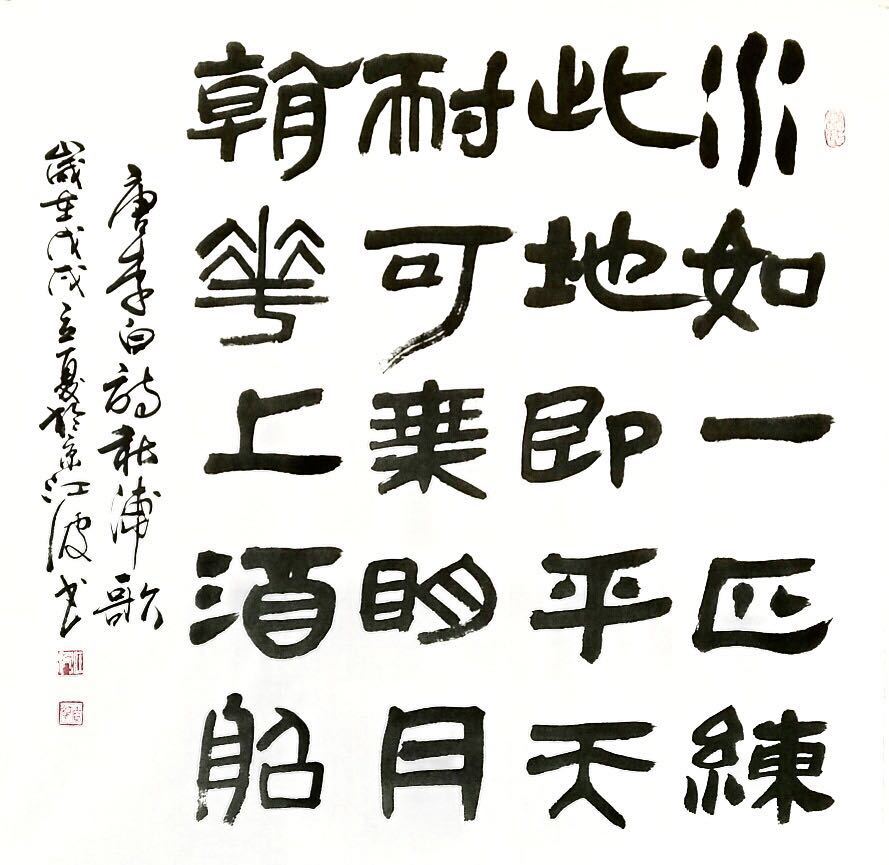 水如一匹練
此地即平天
耐可乘明月
看華上酒船
唐李白詩秋浦歌
歲在戊戌立夏於京江波書